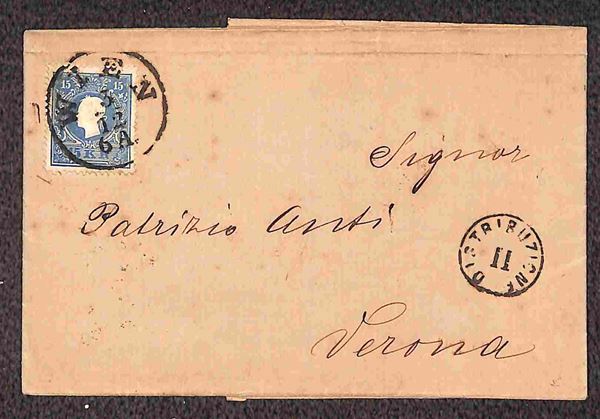 15 15
WIEN
12
6A
KR
Signor
Patrizio Anti
DISTRIBUZIONE
II
Verona